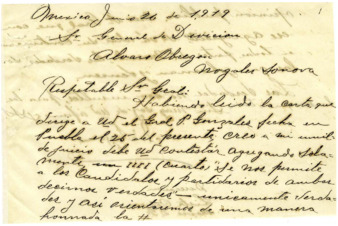 Mexico Junio 26 de 1919
Sr. General de Division
Alvaro Obregon
Nogales Sonora
Respetable Sr. Gral:
Habiendo leido la carta que
dirige a Ud el Gral P Gonzales fecha en
Puebla el 25 del presente, creo a mi
de juicio debe Ud contestar agregando sola-
mente un (cuarto) "Si nos permite
a los Candidatos y partidarios de ambos
decirnos verdades — unicamente verda-
des y asi orientarnos de una manera
honrada la